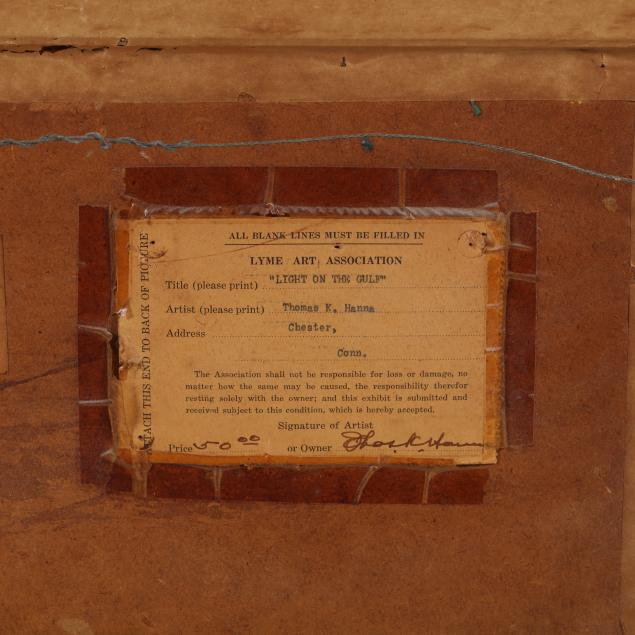 ALL BLANK LINES MUST BE FILLED IN
LYME ART ASSOCIATION
Title (please print) "LIGHT ON THE GULF"
Artist (please print) Thomas K. Hanna
Address Chester,
Conn.
The Association shall not be responsible for loss or damage, no
matter how the same may be caused, the responsibility therefor
resting solely with the owner; and this exhibit is submitted and
received subject to this condition, which is hereby accepted.
Signature of Artist
Price 50 00 or Owner Thos. K. Hanna
ATTACH THIS END TO BACK OF PICTURE